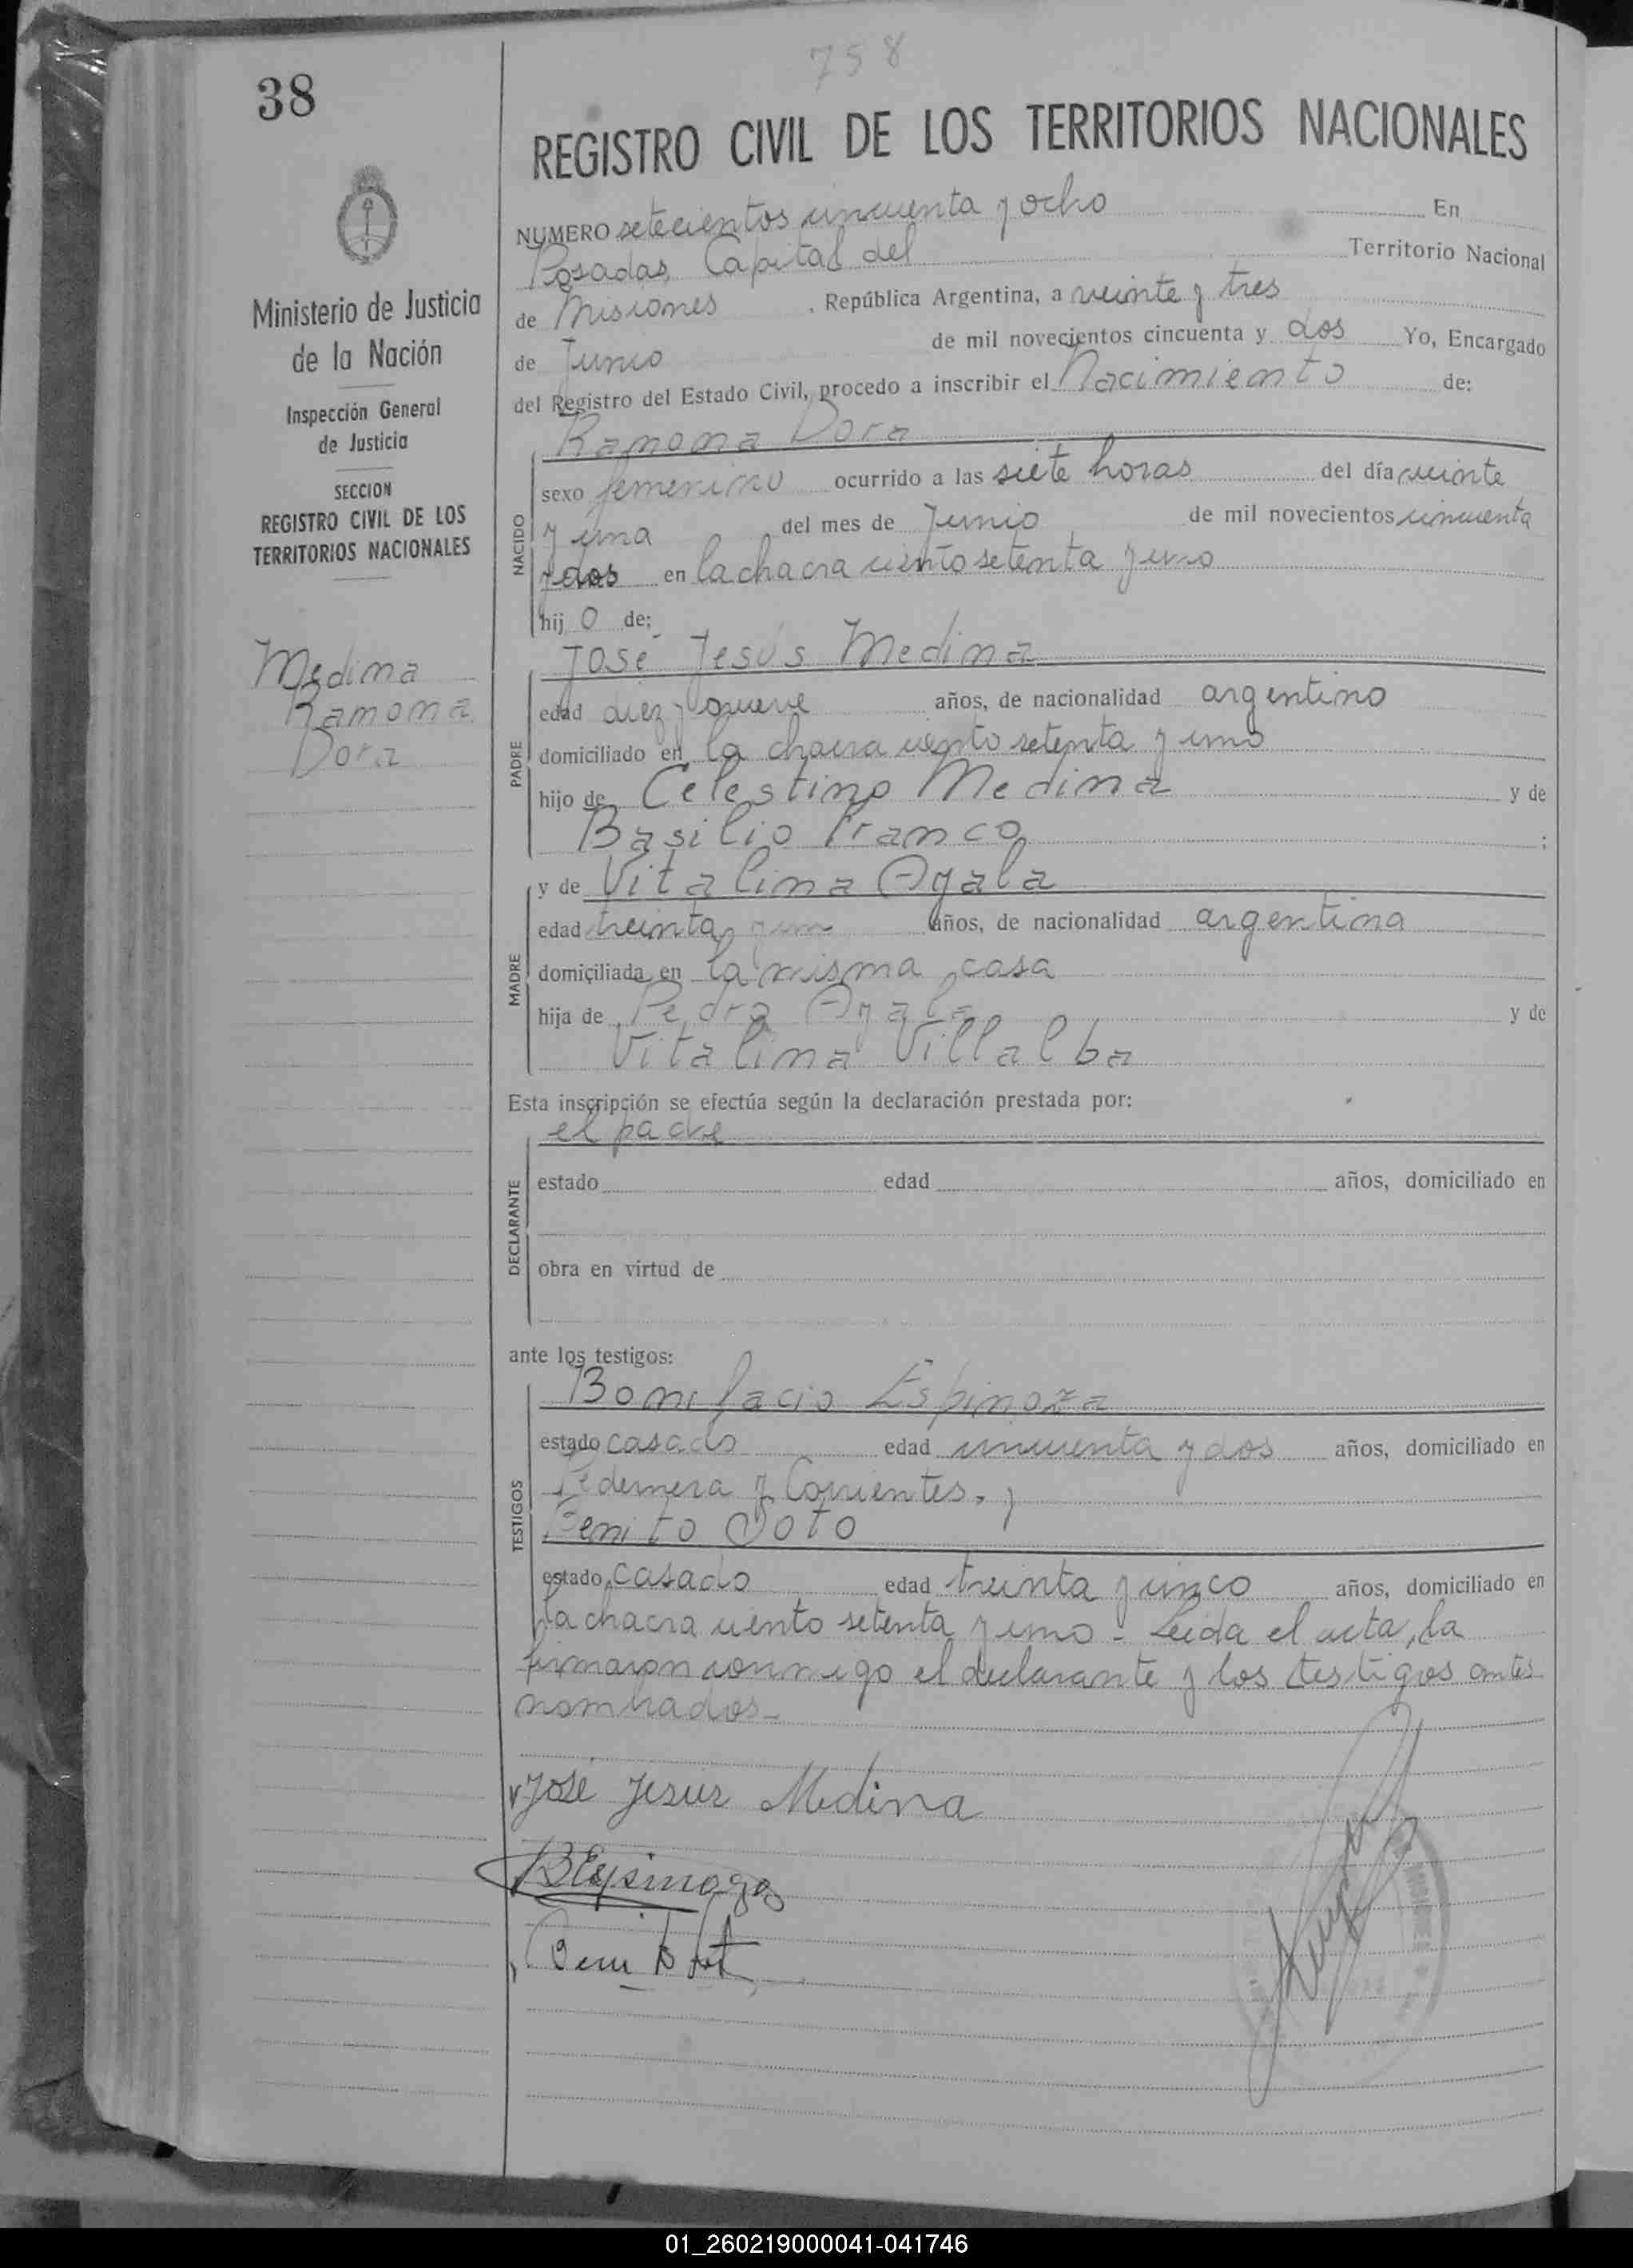 758
38
REGISTRO CIVIL DE LOS TERRITORIOS NACIONALES
NUMERO setecientos cincuenta y ocho En
Posadas, Capital del Territorio Nacional
de Misiones , República Argentina, a veinte y tres
de Junio de mil novecientos cincuenta y dos Yo, Encargado
del Registro del Estado Civil, procedo a inscribir el Nacimiento de:
Ramona Dora
sexo femenino ocurrido a las siete horas del día veinte
y una del mes de Junio de mil novecientos cincuenta
y dos en la chacra ciento setenta y uno
hij o de:
NACIDO
José Jesús Medina
edad diez y nueve años, de nacionalidad argentino
domiciliado en la chacra ciento setenta y uno
hijo de Celestino Medina y de
Basilio Franco ;
PADRE
y de Vitalina Ayala
edad treinta y un años, de nacionalidad argentina
domiciliada en la misma casa
hija de Pedro Ayala y de
Vitalina Villalba
MADRE
Esta inscripción se efectúa según la declaración prestada por:
el padre
estado edad años, domiciliado en
obra en virtud de
DECLARANTE
ante los testigos:
Bonifacio Espinoza
estado casado edad cincuenta y dos años, domiciliado en
Pedernera y Corrientes, y
Benito Soto
estado casado edad treinta y cinco años, domiciliado en
la chacra ciento setenta y uno - Leida el acta, la
firmaron conmigo el declarante y los testigos antes
nombrados.-
TESTIGOS
José Jesus Medina
B Espinoza
Benito Sot
Ministerio de Justicia
de la Nación
Inspección General
de Justicia
SECCION
REGISTRO CIVIL DE LOS
TERRITORIOS NACIONALES
Medina
Ramona
Dora
01_260219000041-041746